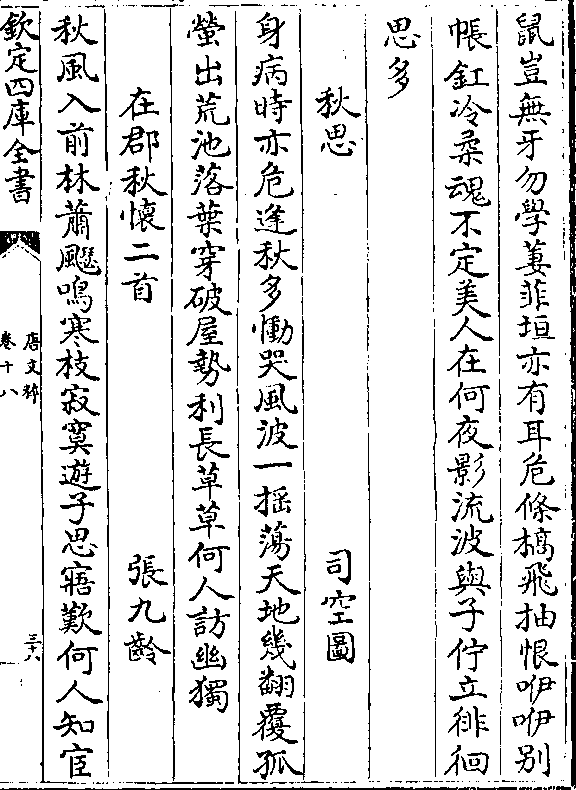 鼠豈無牙勿學萋菲垣亦有耳危條槁飛抽恨咿咿别
帳釭冷柔魂不定美人在何夜影流波與子佇立徘徊
思多
秋思 司空圖
身病時亦危逢秋多慟哭風波一揺蕩天地幾翻覆孤
螢出荒池落葉穿破屋勢利長草草何人訪幽獨
在郡秋懐二首 張九齡
秋風入前林蕭飋鳴寒枝寂寞遊子思寤歎何人知宦
欽定四庫全書
唐文粹
卷十八
三十六